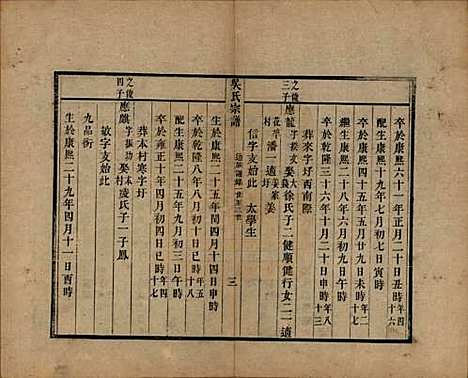 卒於康熙六十一年正月二十日丑時年四十六
配生康熙十六年八月初七日寅時
卒於康熙四十五年九月初九日未時年二
繼生康熙二十年六月初九日午時
卒於康熙三十六年十月二十日申時年三十
葬來字圩西南隅
之後三子應龍字
娶大徐氏子二健順健行女二一適
花潘一適姜
村圩
信字支始此 太學生
吳氏宗譜
三
生於康熙二十五年閏四月十四日申時
卒於乾隆八年八月初三日巳時年五十八
配生康熙二十五年九月初三日辰時
卒於雍正十年十月初四日巳時年四十七
葬本村寒字圩
之後四子應麒字
娶村凌氏子一子鳳
敏字支始此
九品銜
生於康熙二十九年四月十一日酉時